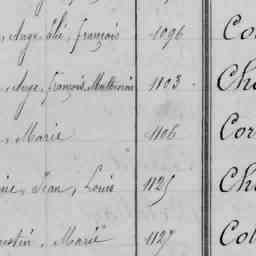 , Ange Elie, françois 1096 Co
, Ange, françois, Mathurin 1103 Cha
, Marie 1106 Cor
ine, Jean, Louis 1125 Ch
ustin, Marie 1127 Col